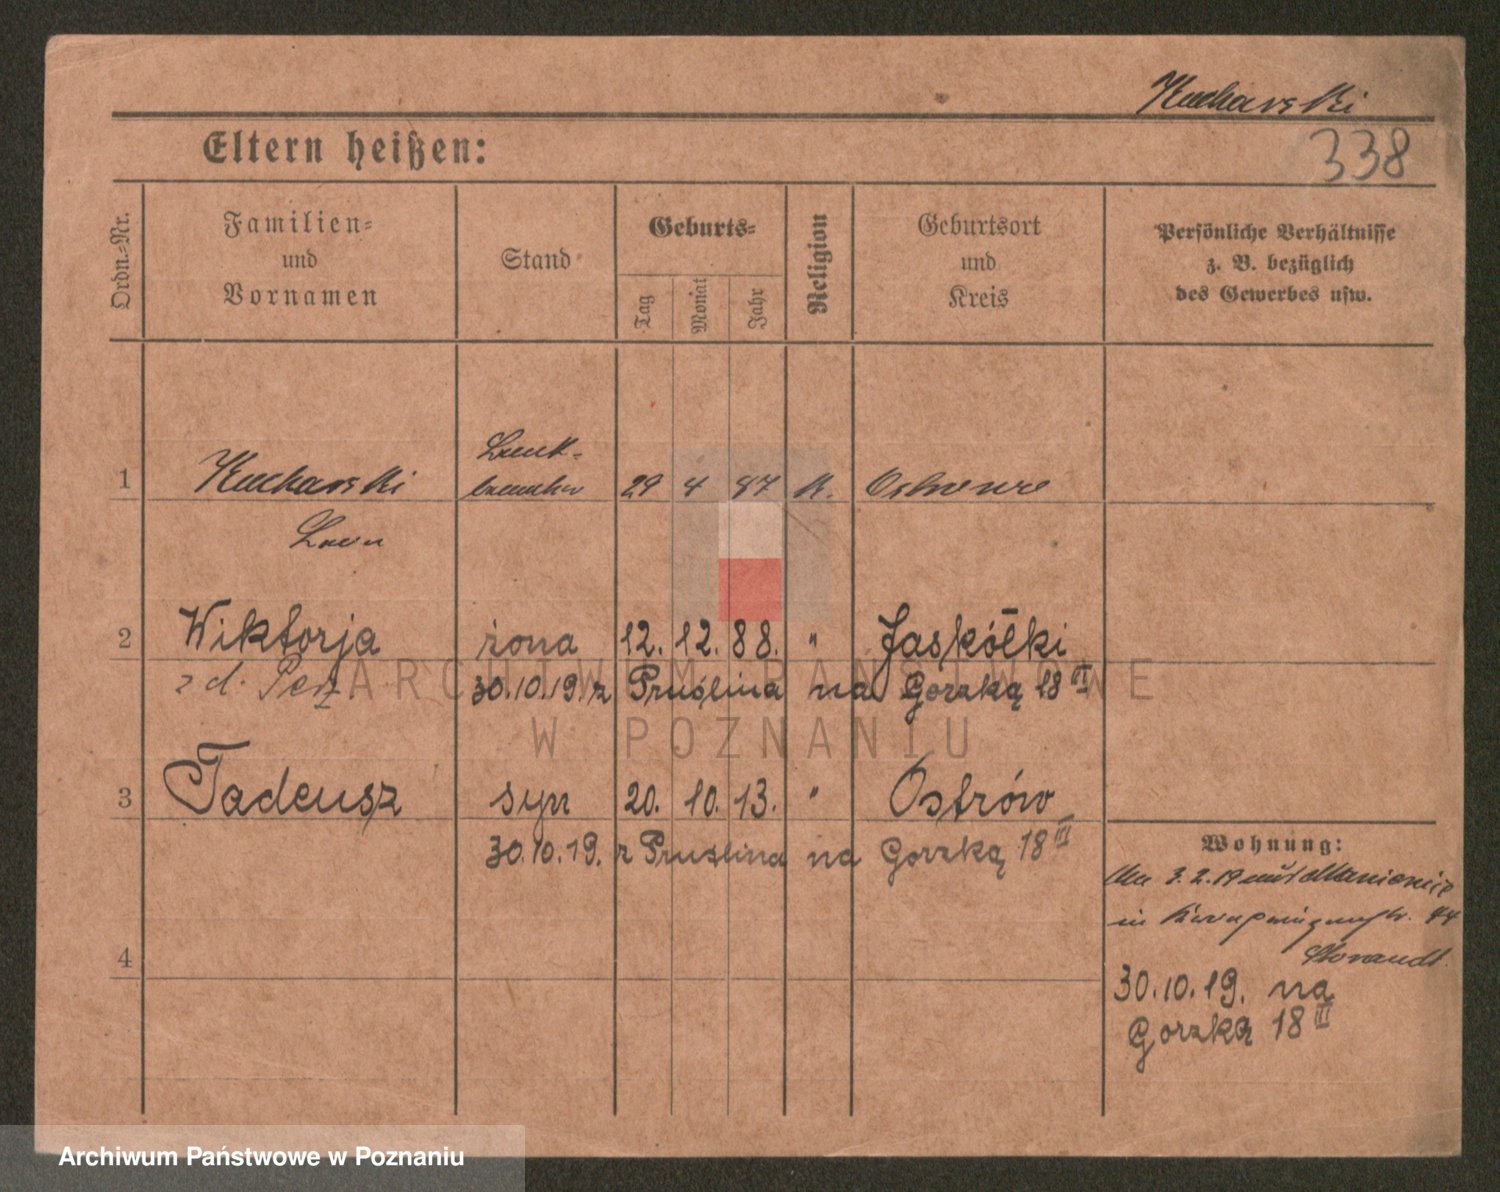 Kucharski
338
Eltern heißen:
Ordn.-Nr.
Familien-
und
Vornamen
Stand
Geburts-
Tag
Monat
Jahr
Religion
Geburtsort
und
Kreis
Persönliche Verhältnisse
z. B. bezüglich
des Gewerbes usw.
1
Kucharski
29 4 87 K.
2 Wiktorja żona 12. 12. 88. " Jaskółki
z d. Perz 30.10.19. z Pruślina na Gorzką 18 III
3 Tadeusz syn 20. 10. 13. " Ostrów
30.10.19. z Pruslina na Gorzką 18 III
Wohnung:
3.2.19
in 44
4
30.10.19. na
Gorzką 18 III
ARCHIWUM PAŃSTWOWE
W POZNANIU
Archiwum Państwowe w Poznaniu